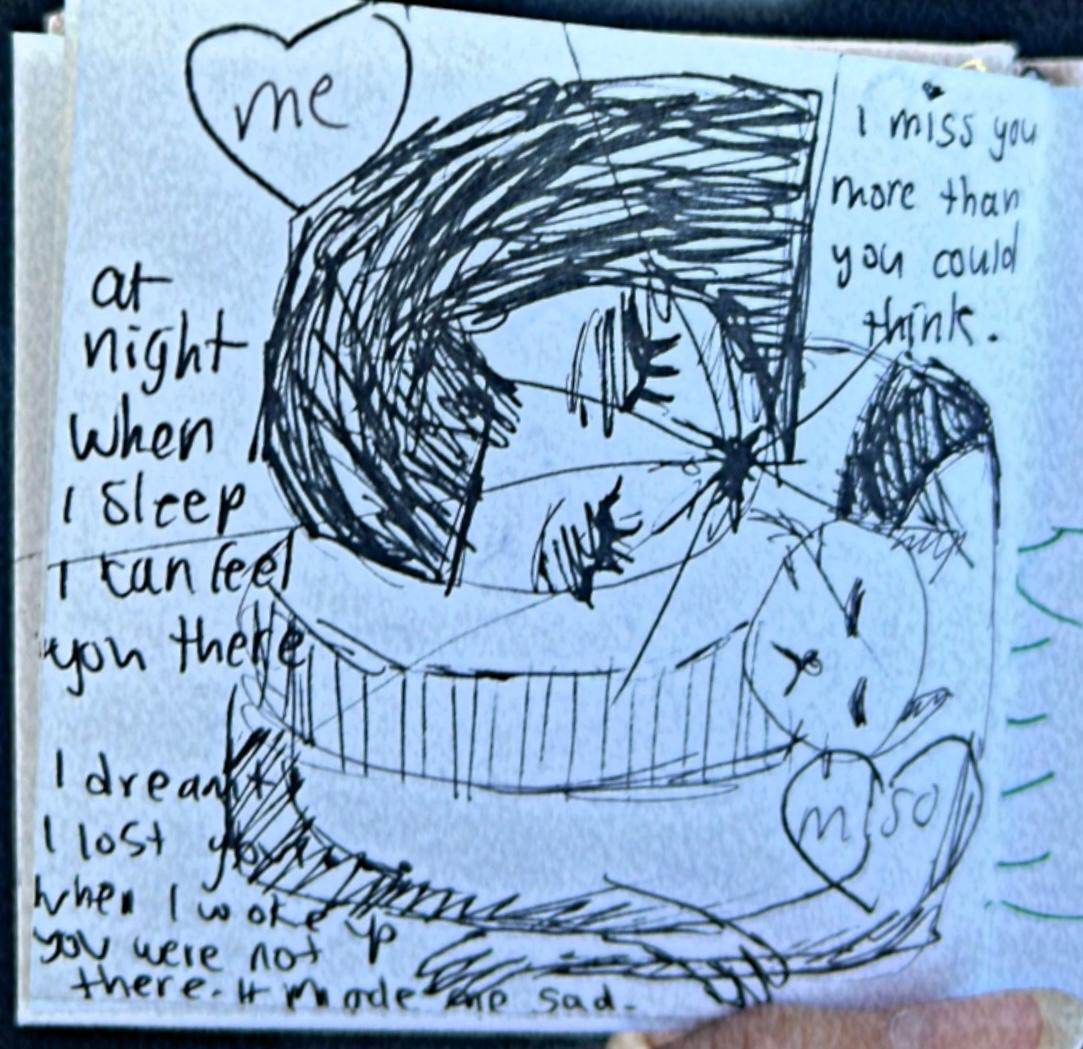 me
I miss you
more than
you could
think.
at
night
when
I sleep
I can feel
you there
I dreamt
I lost you
when I woke up
you were not
there. It made me sad.
miso